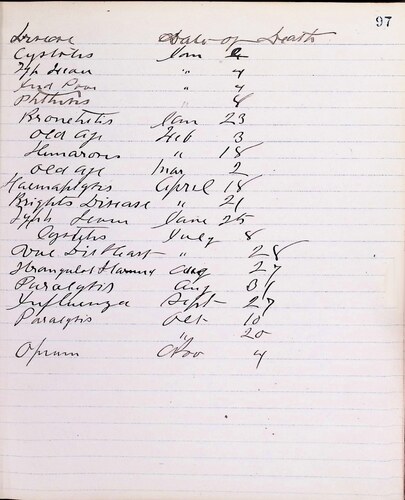 97
Disease Date of Death
Cystitis Jan 2
" 4
" 4
Phthisis " 8
Bronchitis Jan 23
Old Age Feb 3
" 18
Old age Mar 2
Haemoptysis April 18
Brights Disease " 21
June 25
Cystitis July 8
Heart " 28
Strangulated Aug 27
Paralysis Aug 31
Influenza Sept 27
Paralysis Oct 10
" 20
Opium Nov 4